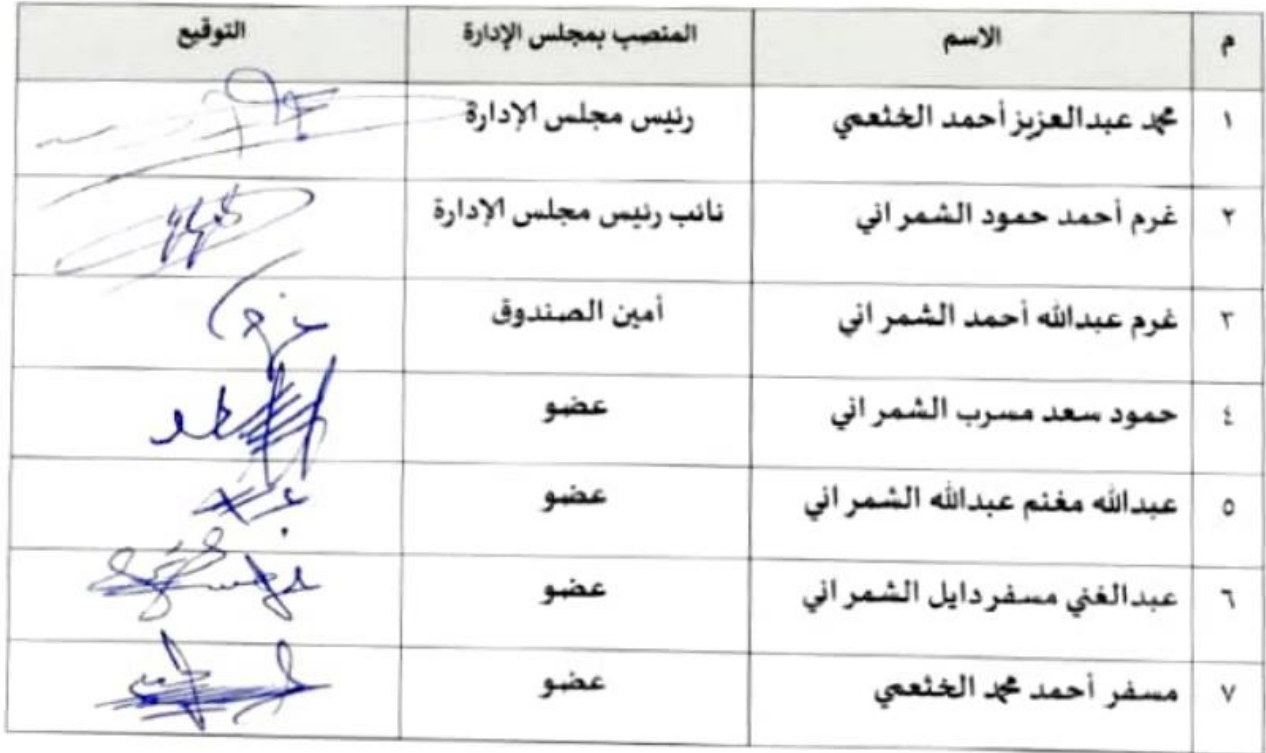 م الاسم المنصب بمجلس الإدارة التوقيع
١ محمد عبدالعزيز أحمد الخثعمي رئيس مجلس الإدارة
٢ غرم أحمد حمود الشمراني نائب رئيس مجلس الإدارة
٣ غرم عبدالله أحمد الشمراني أمين الصندوق
٤ حمود سعد مسرب الشمراني عضو
٥ عبدالله مغنم عبدالله الشمراني عضو
٦ عبدالغني مسفر دايل الشمراني عضو
٧ مسفر أحمد محمد الخثعمي عضو